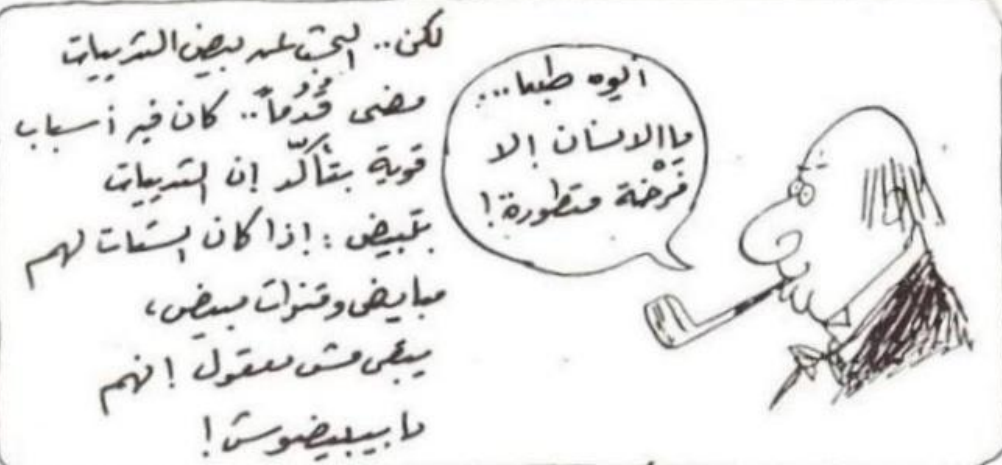 لكن.. البحث عن بيض الثدييات
مضى قُدُماً.. كان فيه أسباب
قوية بتأكّد إن الثدييات
بتبيض: إذا كان الستات لهم
مبايض وقنوات بيض،
يبقى مش معقول إنهم
ما بيبيضوش!
أيوه طبعا...
ما الانسان إلا
فَرْخة متطورة!